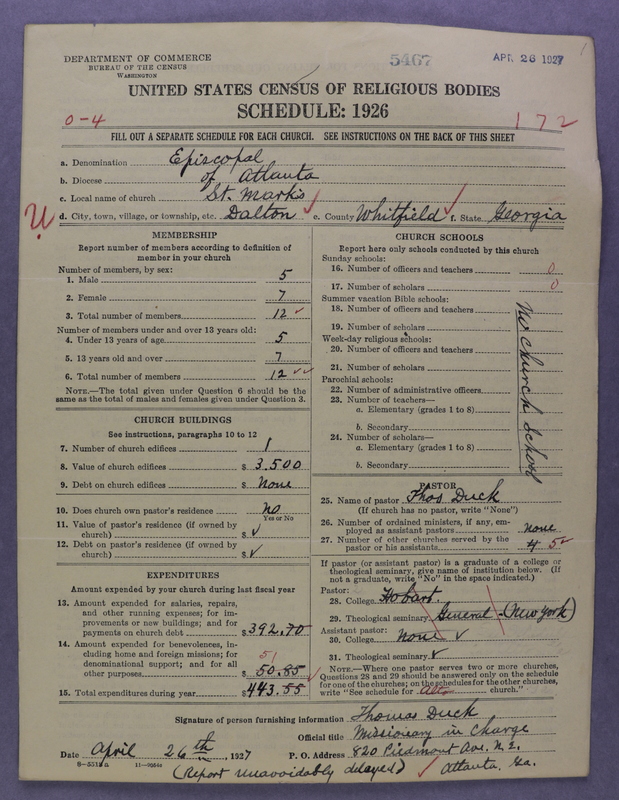 DEPARTMENT OF COMMERCE
BUREAU OF THE CENSUS
WASHINGTON
5467
APR 26 1927
UNITED STATES CENSUS OF RELIGIOUS BODIES
SCHEDULE: 1926
0-4
172
FILL OUT A SEPARATE SCHEDULE FOR EACH CHURCH. SEE INSTRUCTIONS ON THE BACK OF THIS SHEET
a. Denomination Episcopal
b. Diocese of Atlanta
c. Local name of church St. Mark's
U d. City, town, village, or township, etc. Dalton e. County Whitfield f. State Georgia
MEMBERSHIP
Report number of members according to definition of
member in your church
Number of members, by sex:
1. Male 5
2. Female 7
3. Total number of members 12
Number of members under and over 13 years old:
4. Under 13 years of age 5
5. 13 years old and over 7
6. Total number of members 12
NOTE.—The total given under Question 6 should be
same as the total of males and females given under Question 3.
CHURCH BUILDINGS
See instructions, paragraphs 10 to 12
7. Number of church edifices 1
8. Value of church edifices $ 3.500
9. Debt on church edifices $ None
10. Does church own pastor's residence no
Yes or No
11. Value of pastor's residence (if owned by
church) $ ✓
12. Debt on pastor's residence (if owned by
church) $ ✓
EXPENDITURES
Amount expended by your church during last fiscal year
13. Amount expended for salaries, repairs,
and other running expenses; for im-
provements or new buildings; and for
payments on church debt $ 392.70
14. Amount expended for benevolences, in-
cluding home and foreign missions; for
denominational support; and for all
51
other purposes $ 50.85
15. Total expenditures during year $ 443.55
CHURCH SCHOOLS
Report here only schools conducted by this church
Sunday schools:
16. Number of officers and teachers 0
17. Number of scholars 0
Summer vacation Bible schools:
18. Number of officers and teachers
19. Number of scholars
Week-day religious schools:
20. Number of officers and teachers
21. Number of scholars
Parochial schools:
22. Number of administrative officers
23. Number of teachers—
a. Elementary (grades 1 to 8)
b. Secondary
24. Number of scholars—
a. Elementary (grades 1 to 8)
b. Secondary
No Church School
PASTOR
25. Name of pastor Thos Duck
(If church has no pastor, write "None")
26. Number of ordained ministers, if any, em-
ployed as assistant pastors none
27. Number of other churches served by the
pastor or his assistants 4 5
If pastor (or assistant pastor) is a graduate of a college or
theological seminary, give name of institution below. (If
not a graduate, write "No" in the space indicated.)
Pastor:
28. College Hobart.
29. Theological seminary General - (New York)
Assistant pastor:
30. College None ✓
31. Theological seminary ✓
NOTE.—Where one pastor serves two or more churches,
Questions 28 and 29 should be answered only on the schedule
for one of the churches; on the schedules for the other churches,
write "See schedule for church."
Signature of person furnishing information Thomas Duck
Official title Missionary in Charge
Date April 26th, 1927 P. O. Address 820 Piedmont Ave. N.E.
(Report unavoidably delayed) Atlanta, Ga.